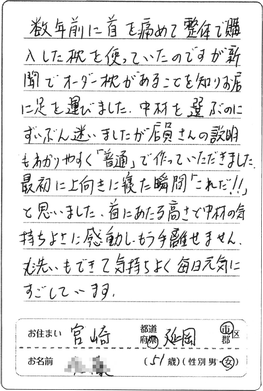 数年前に首を痛めて整体で購
入した枕を使っていたのですが新
聞でオーダー枕があることを知りお店
に足を運びました。中材を選ぶのに
ずいぶん迷いましたが店員さんの説明
もわかりやすく「普通」で作っていただきました。
最初に上向きに寝た瞬間「これだ!!」
と思いました。首にあたる高さで中材の気
持ちよさに感動し、もう手離せません。
丸洗いもできて気持ちよく毎日元気に
すごしています。
お住まい 宮崎 都道府県 延岡 市区郡
お名前 (51歳)(性別 男・女)